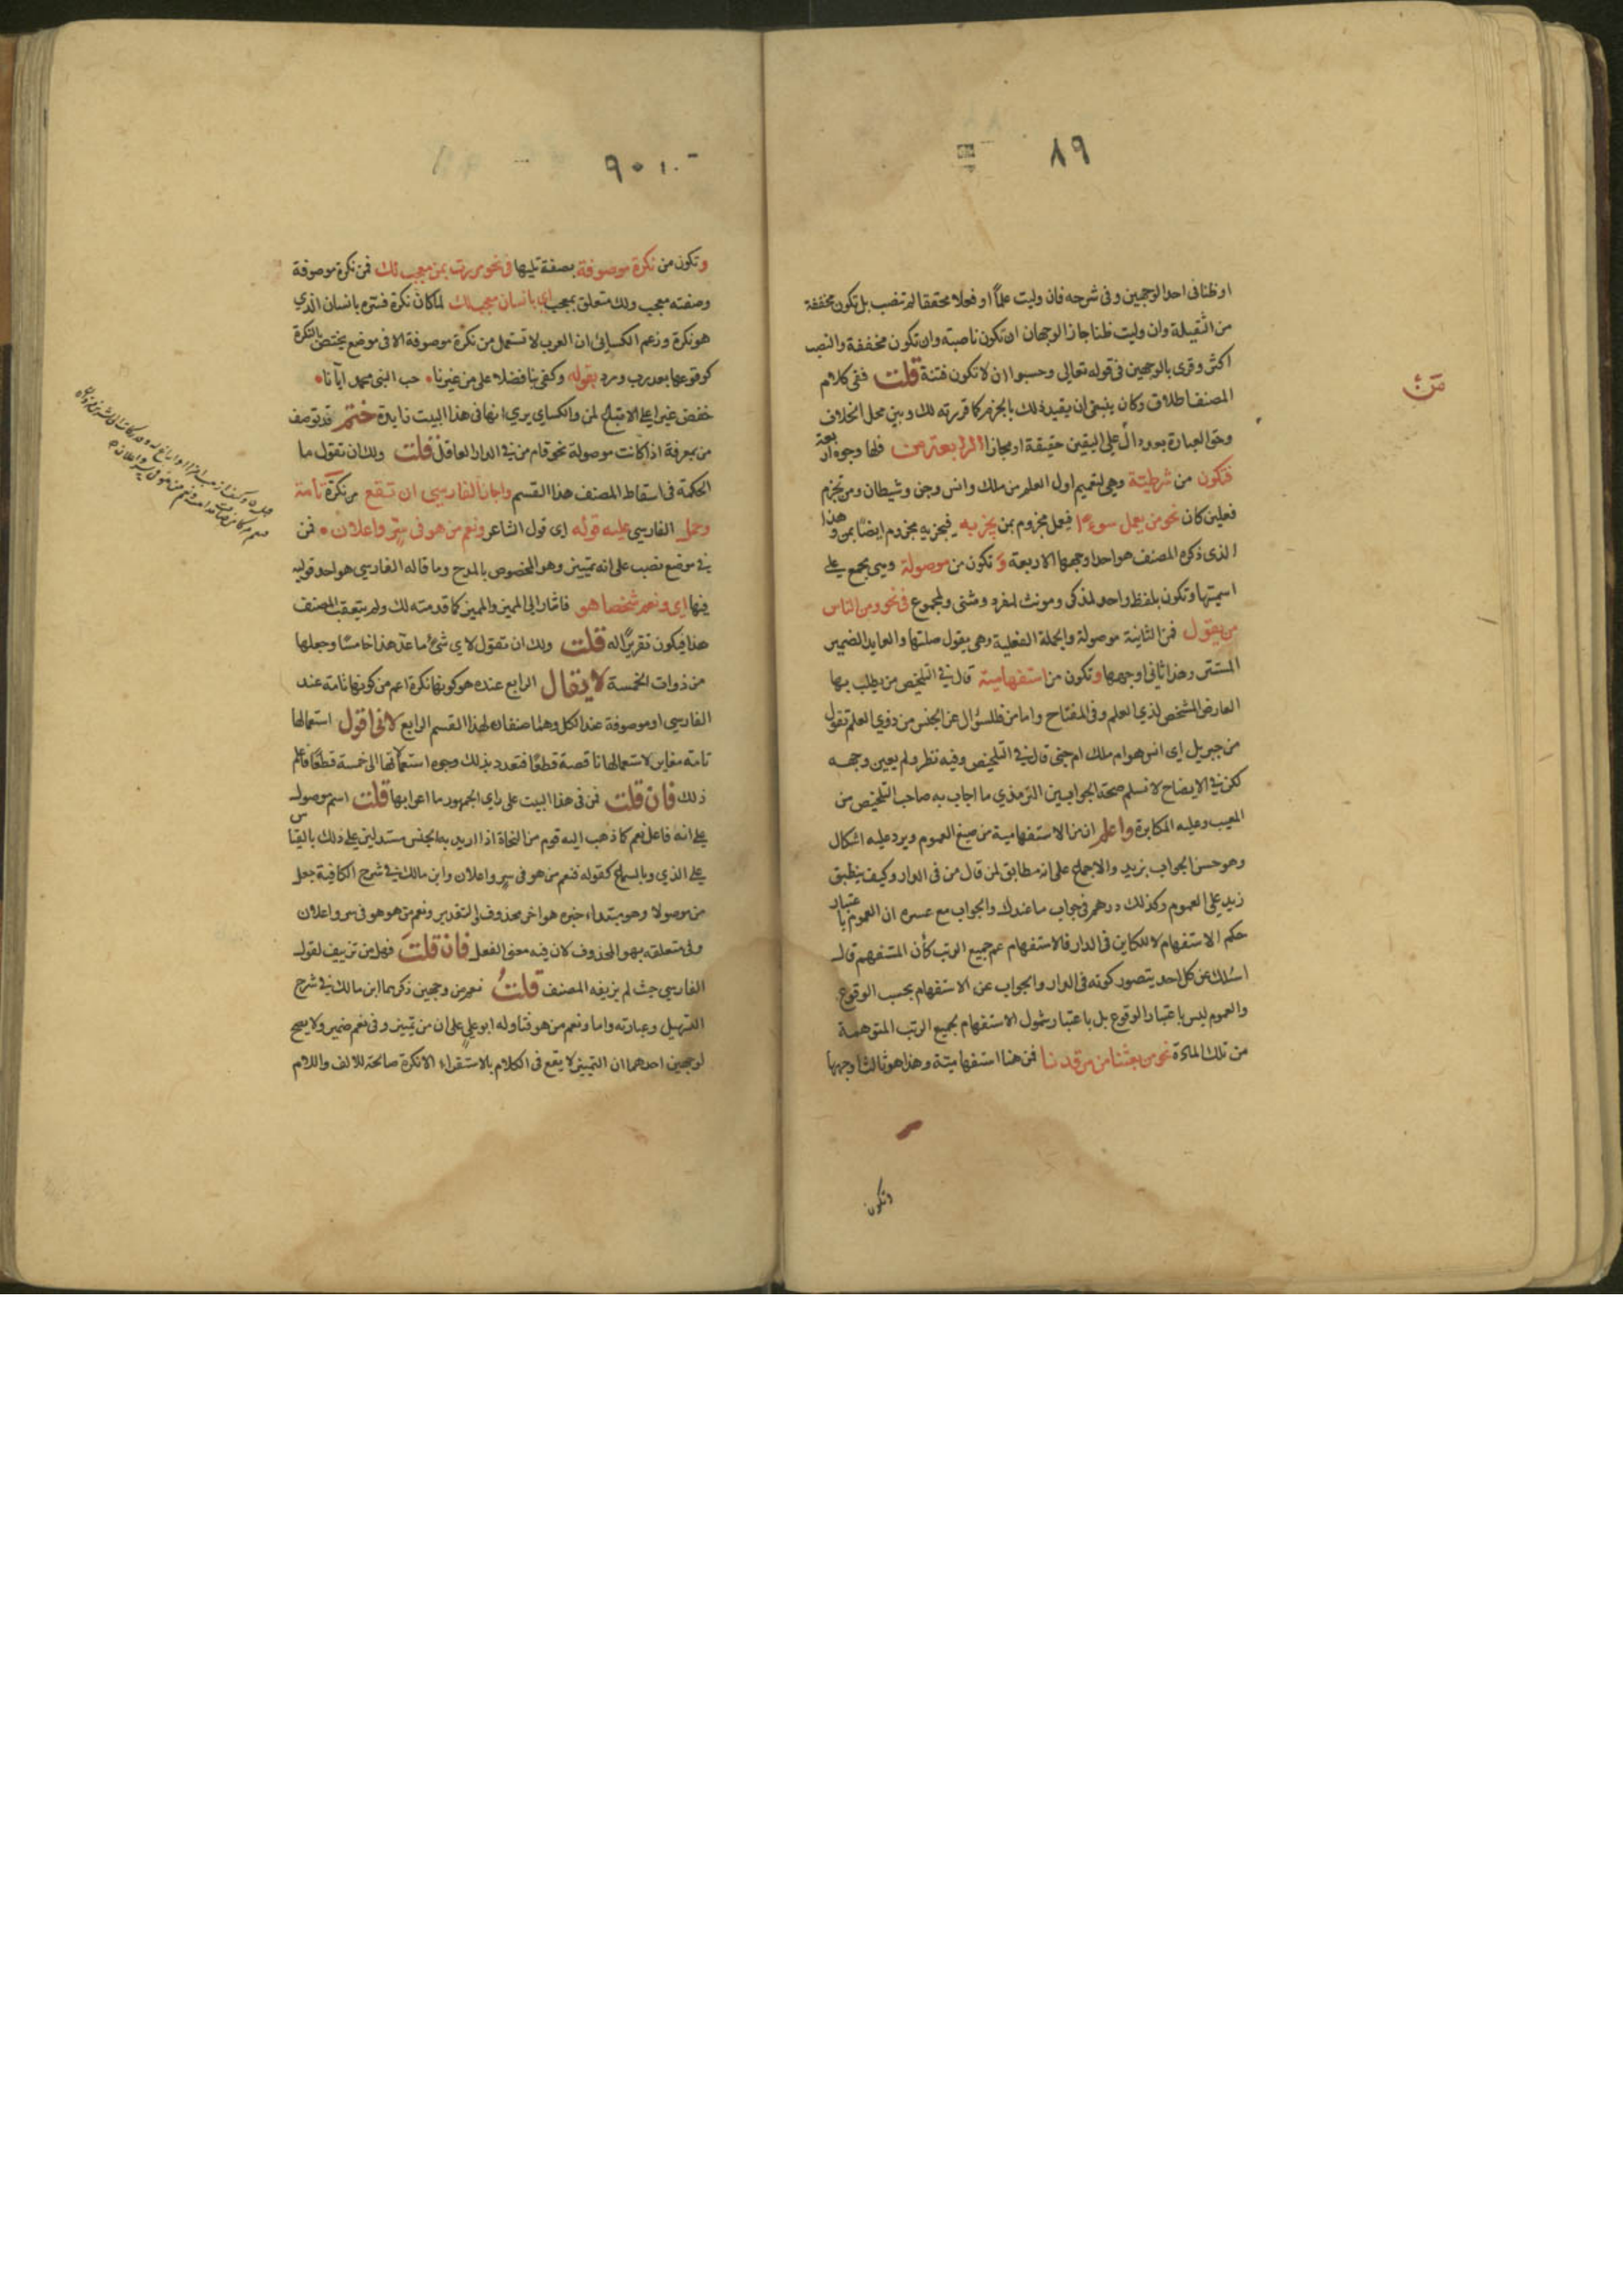 ٨٩
اوظنا فى احد الوجهين وفى شرحه فان وليت علماً او فعلا محققا لم تنصب بل تكون مخففة
من الثقيلة وان وليت ظنا جاز الوجهان ان تكون ناصبة وان تكون مخففة والنصب
اكثر وقرى بالوجهين فى قوله تعالى وحسبوا ان لا تكون فتنة قلت ففى كلام
المصنف اطلاق وكان ينبغى ان يقيد ذلك بالجزم كما قررته لك وبين محل الخلاف
وحق العبارة بعد دال على اليقين حقيقة او مجازا الرابعة من فلها وجوه اربعة
فتكون من شرطيّة وهى لتعميم اولى العلم من ملك وانس وجن وشيطان ومن تجزم
فعلين كان نحو من يعمل سوءا فيعمل مجزوم بمن يجز به فيجز به مجزوم ايضا بمن وهذا
الذى ذكره المصنف هو احد اوجهها الاربعة و تكون من موصولة وهى مجمع على
اسميتها وتكون بلفظ واحد لمذكر ومونث لمفرد ومثنى ولمجموع فى نحو ومن الناس
من يقول فمن الثانية موصولة والجملة الفعلية وهى يقول صلتها والعايد الضمير
المستتر وهذا ثانى اوجهها وتكون من استفهامية قال فى التلخيص من يطلب بها
العارض المشخص لذي العلم وفى المفتاح واما من فللسؤال عن الجنس من ذوي العلم تقول
من جبريل اى انس هو ام ملك ام جنى قال فى التلخيص وفيه نظر ولم يعين وجهه
لكن فى الايضاح لا نسلم صحة الجوابين الترمذي ما اجاب به صاحب التلخيص من
المعيب وعليه المكابرة واعلم ان من الاستفهامية من صيغ العموم ويرد عليه اشكال
وهو حسن الجواب بزيد والاجماع على انه مطابق لمن قال من فى الدار وكيف ينطبق
زيد على العموم وكذلك درهم فى جواب ما عندك والجواب مع عسره ان العموم باعتبار
حكم الاستفهام لا للكاين فى الدار فالاستفهام عم جميع الرتب كأن المستفهم قال
اسئلك عن كل احد يتصور كونه فى الدار والجواب عن الاستفهام بحسب الوقوع
والعموم ليس باعتبار الوقوع بل باعتبار شمول الاستفهام لجميع الرتب المتوهمة
من تلك المادة نحو من بعثنا من مرقدنا فمن هنا استفهامية وهذا هو ثالث اوجهها
وتكون
مَنْ
٩٠
وتكون من نكرة موصوفة بصفة تليها فى نحو مررت بمن معجب لك فمن نكرة موصوفة
وصفته معجب ولك متعلق بمعجب اى بانسان معجب لك لما كان نكرة فسره بانسان الذي
هو نكرة وزعم الكسائى ان العرب لا تستعمل من نكرة موصوفة الا فى موضع يختص بالنكرة
كوقوعها بعد رب ورد بقوله وكفى بنا فضلا على من غيرنا • حب النبى محمد ايانا •
خفض غير على الاتباع لمن والكساي يري انها فى هذا البيت زايدة ختم قد توصف
من بمعرفة اذا كانت موصولة نحو قام من فى الدار العاقل قلت ولك ان تقول ما
الحكمة فى اسقاط المصنف هذا القسم واجاز الفارسي ان تقع من نكرة تامة
وحمل الفارسي عليه قوله اى قول الشاعر ونعم من هو فى سر واعلان • فمن
فى موضع نصب على انه تمييز وهو المخصوص بالمدح وما قاله الفارسي هو احد قوليه
فيها اى ونعم شخصا هو فاشار الى المميز والمميز كما قدمته لك ولم يتعقب المصنف
هذا فيكون تقريرًا له قلت ولك ان تقول لاي شئ ما عد هذا خامسًا وجعلها
من ذوات الخمسة لا يقال الرابع عنده هو كونها نكرة اعم من كونها تامة عند
الفارسي او موصوفة عند الكل وهما صنفان لهذا القسم الرابع لانى اقول استعمالها
تامة مغاير لاستعمالها ناقصة قطعًا فتعدد بذلك وجوه استعمالاتها الى خمسة قطعًا فاعلم
ذلك فان قلت فمن فى هذا البيت على راي الجمهور ما اعرابها قلت اسم موصول
على انه فاعل نعم كما ذهب اليه قوم من النحاة اذا اريد به الجنس مستدلين على ذلك بالقياس
على الذي وبالسماع كقوله فنعم من هو فى سر واعلان وابن مالك فى شرح الكافية جعل
من موصولا وهو مبتداء خبره هو اخر محذوف والتقدير ونعم من هو هو فى سر واعلان
وفى متعلقه بهو المحذوف لان فيه معنى الفعل فان قلتَ فهل من تزييف لقول
الفارسي حيث لم يزيفه المصنف قلتُ نعم من وجهين ذكرهما ابن مالك فى شرح
التسهيل وعبارته واما ونعم من هو فتاوله ابو علي على ان من تمييز وفى نعم ضمير ولا يصح
لوجهين احدهما ان التمييز لا يقع فى الكلام بالاستقراء الا نكرة صالحة للالف واللام